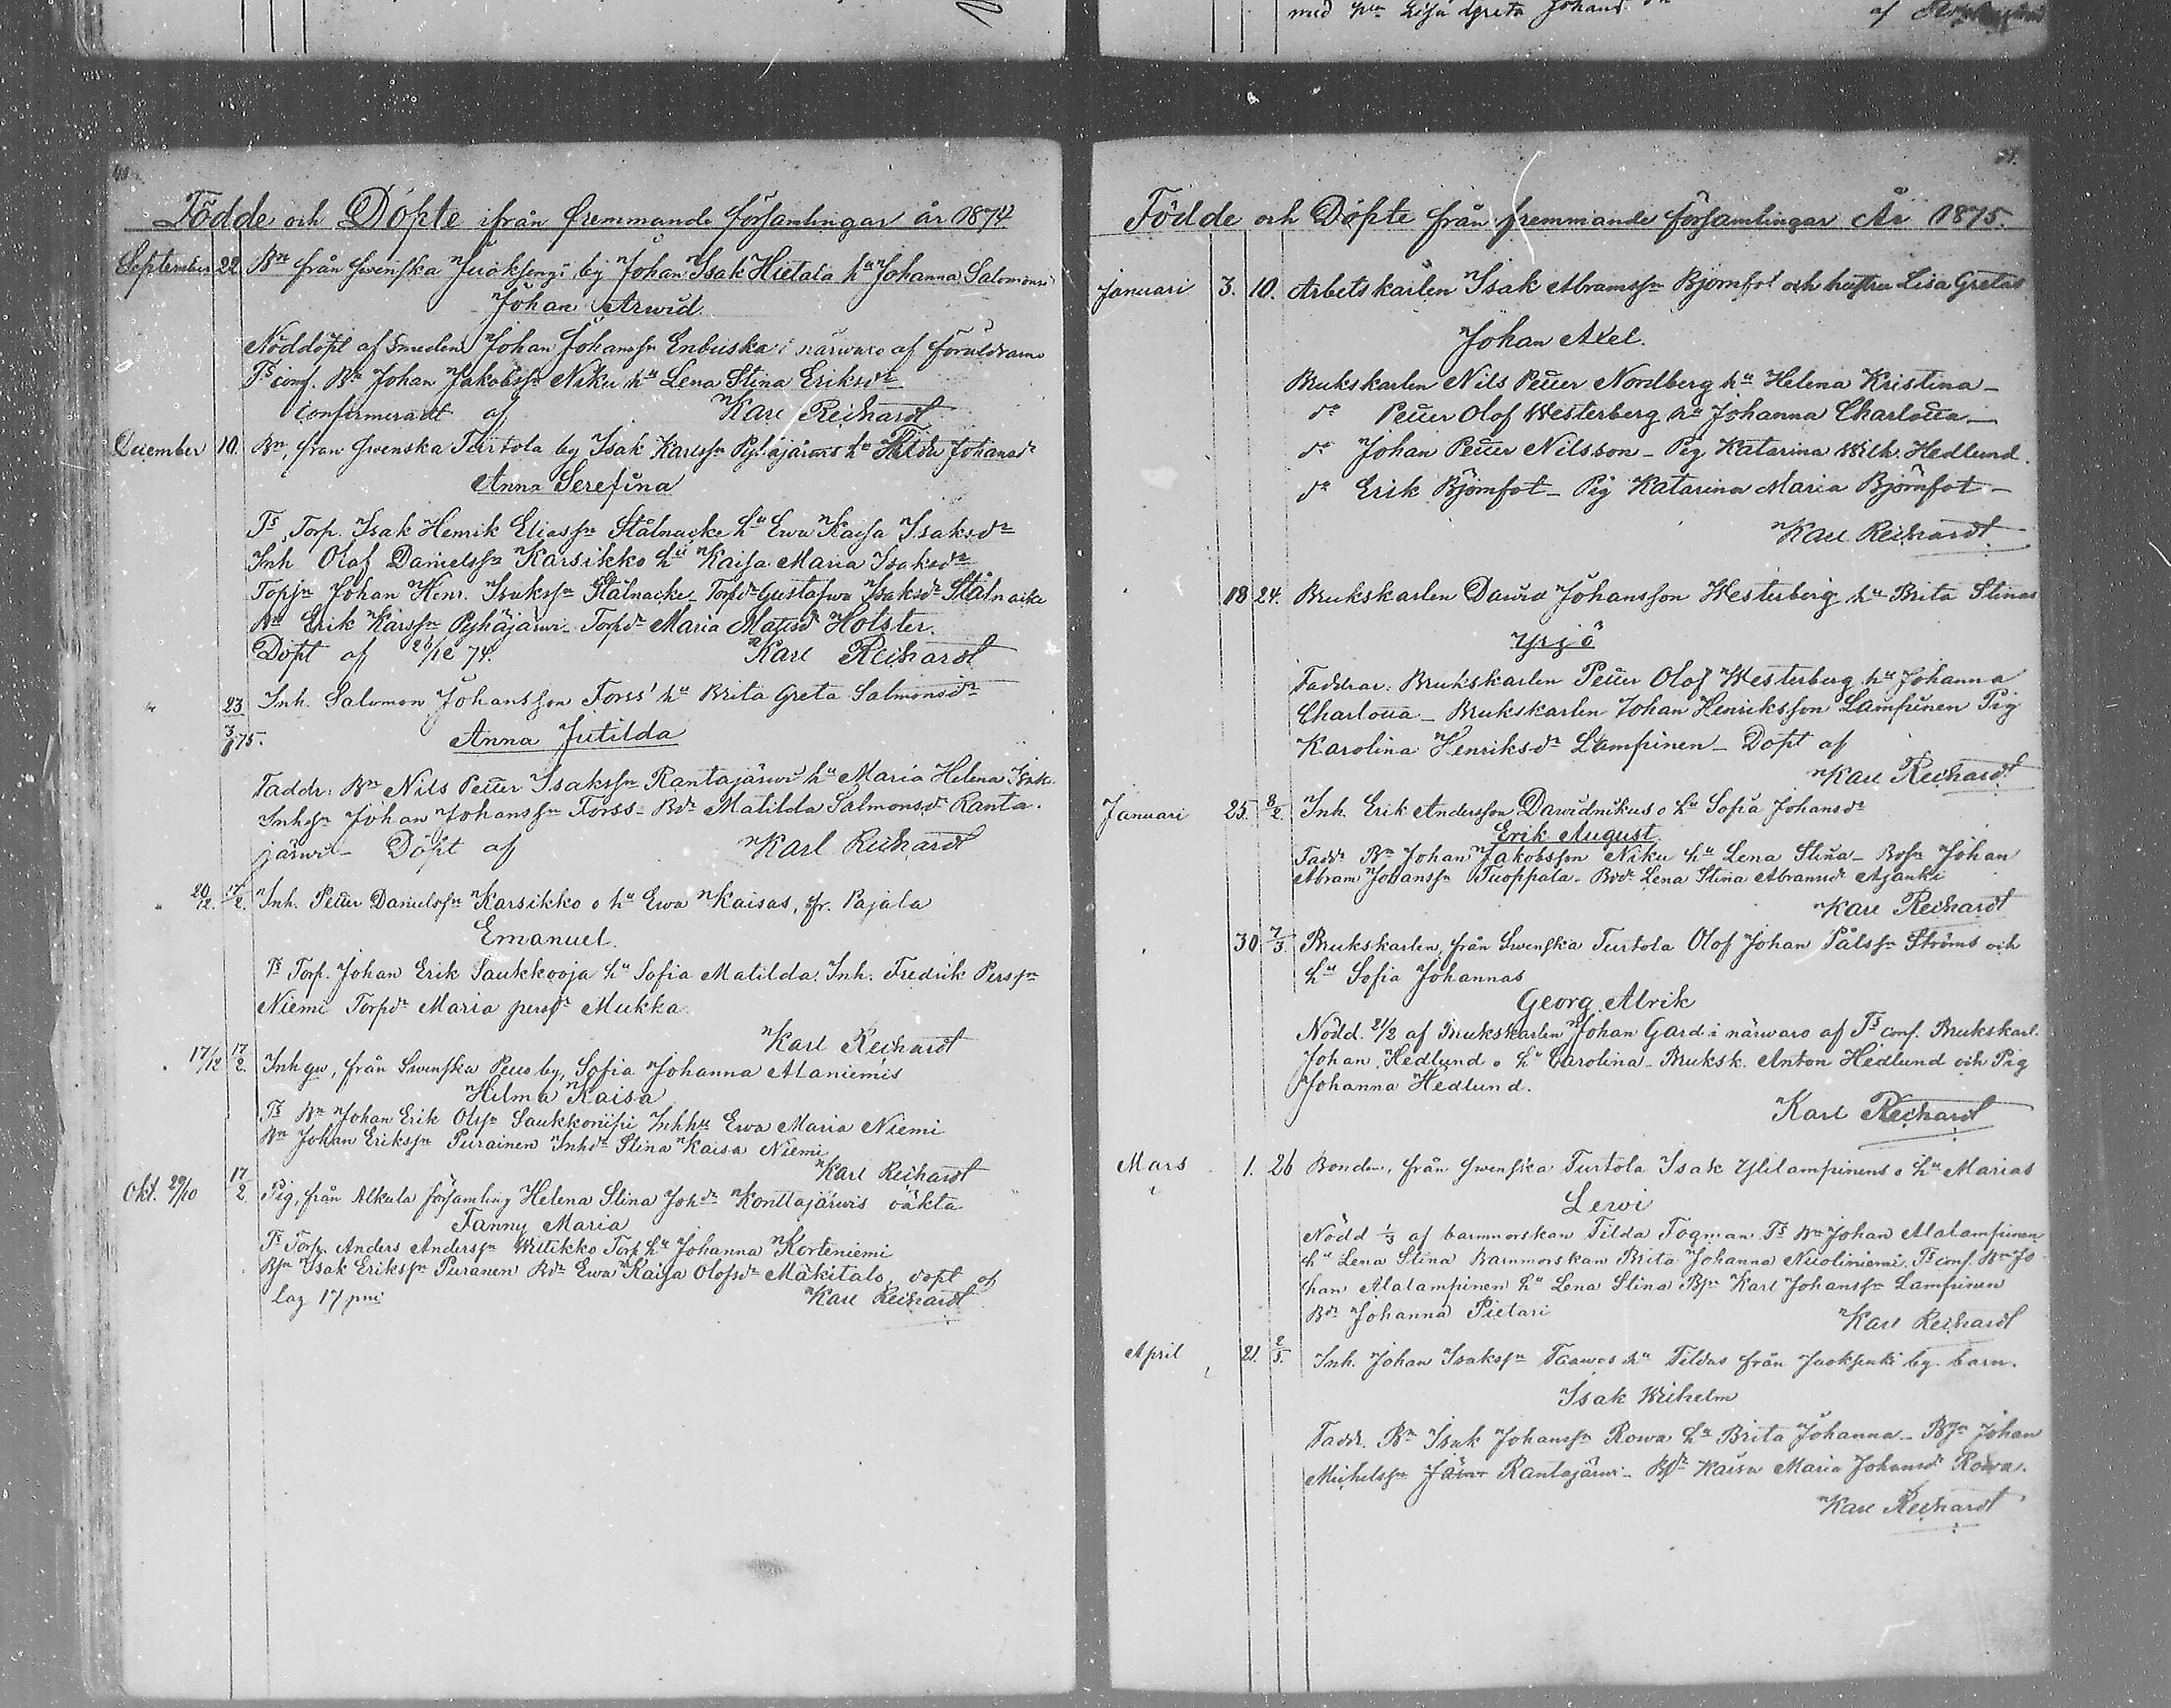 med hn Lisa Greta Johansdr af
Födde och Döpte ifrån fremmande församlingar år 1874
September 22 Bn från Swenska Juoksengi by Johan Isak Hietala hu Johanna Salomonsdr
Johan Arwid.
Nöddöpt af Smeden Johan Johansson Enbuska i närwaro af föräldrarne
Ts conf. Bn Johan Jakobssn Niku hu Lena Stina Eriksdr
confirmeradt af Karl Reichardt
December 10. Bn, från Swenska Turtola by Isak Karlssn Pyhäjärwis hu Tilda Johansdr
Anna Serefina
Ts, Torp. Isak Henrik Eliassn Stålnacke hu Ewa Kaisa Isaksdr
Inh Olof Danielssn Karsikko hu Kaisa Maria Isaksdr
Topsn Johan Henr. Isakssn Stålnacke Torpdr Gustafwa Isaksdr Stålnacke
Bn Erik Karssn Pyhäjärwi Torpdr Maria Matsdr Holster.
Döpt af 26/12 74. Karl Reichardt
23 Inh. Salomon Johansson Forss' hu Brita Greta Salmonsdr
3/1 75. Anna Jutilda
Faddr: Bn Nils Petter Isakssn Rantajärwi hu Maria Helena Isak.
Inhsn Johan Johanssn Forss - Bdr Matilda Salmonsdr Ranta.
järwi - Döpt af Karl Reichardt
20/12. 17/2. Inh. Petter Danielssn Karsikko o hu Ewa Kaisas, fr. Pajala
Emanuel.
Ts Torp. Johan Erik Saukkooja hu Sofia Matilda. Inh. Fredrik Perssn
Niemi Torpdr Maria persdr Mukka.
Karl Reichardt
17/12 17/2. Inh qw, från Swenska Pello by, Sofia Johanna Alaniemis
Hilma Kaisa
Ts Bn Johan Erik Olssn Saukkoniipi Inhhu Ewa Maria Niemi
Bn Johan Erikssn Puirainen Inhdr Stina Kaisa Niemi
Karl Reichardt
Okt. 29/10 17/2. Pig, från Alkula församling Helena Stina Johdr Konttajärwis oäkta
Fanny Maria
Ts Torp. Anders Anderssn Witikko Torp hu Johanna Korteniemi
Bsn Isak Erikssn Puranen Bdr Ewa Kaisa Olofsdr Mäkitalo, döpt af
lag 17 Karl Reichardt
Födde och Döpte från fremmande församlingar År 1875.
Januari 3. 10. Arbetskarlen Isak Abramssn Björnfot och hustru Lisa Gretas
Johan Axel.
Brukskarlen Nils Petter Nordberg hu Helena Kristina -
do Petter Olof Westerberg hu Johanna Charlotta -
do Johan Petter Nilsson - Pig Katarina Wilh. Hedlund.
do Erik Björnfot - Pig Katarina Maria Björnfot -
Karl Reichardt
18 24. Brukskarlen Dawid Johansson Westerberg hu Brita Stinas
Yrjö
Faddrar: Brukskarlen Petter Olof Westerberg hu Johanna
Charlotta - Brukskarlen Johan Henriksson Lampinen Pig
Karolina Henriksdr Lampinen - Döpt af
Karl Reichardt
Januari 25. 8/2. Inh. Erik Andersson Dawidnikus o hu Sofia Johansdr
Erik August
Fadd Bn Johan Jakobsson Niku hu Lena Stina - Bosn Johan
Abram Johanssn Tuoppala. Bodr Lena Stina Abramsdr Ajanki
Karl Reichardt
30 7/3. Brukskarlen, från Swenska Turtola Olof Johan Pålssn Ströms och
hu Sofia Johannas
Georg Alrik
Nödd. 21/2 af Brukskarlen Johan Gard i närwaro af Ts conf. Brukskarl.
Johan Hedlund o hu Carolina - Bruksk. Anton Hedlund och Pig
Johanna Hedlund.
Karl Reichardt
Mars 1. 26 Bonden, från Swenska Turtola Isak Ylilampinens o hu Marias
Lewi
Nödd 1/3 af barnmorskan Tilda Fogman. Ts Bn Johan Alalampinen
hu Lena Stina Barnmorskan Brita Johanna Nuoliniemi. Ts conf. Bn Jo
han Alalampinen hu Lena Stina Bsn Karl Johanssn Lampinen
Bdr Johanna Pietari Karl Reichardt
April 21. 2/5. Inh. Johan Isakssn Taawos hu Tildas från Juoksenki by. barn.
Isak Wilhelm
Fadd. Bn Isak Johanssn Rowa hu Brita Johanna - Bsn Johan
Michelssn Järw Rantajärwi - Bdr Kaisa Maria Johansdr Rowa.
Karl Reichardt